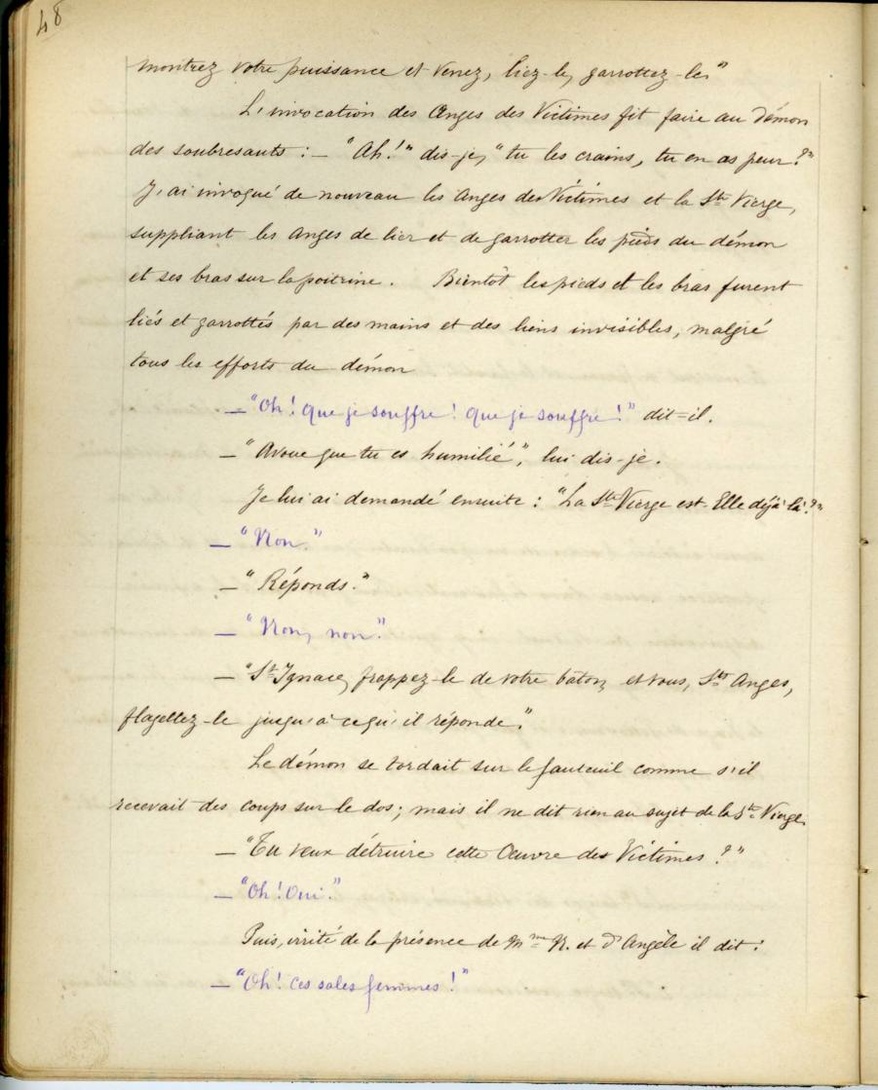 48
montrez votre puissance et venez, liez-le, garrottez-le"
L'invocation des Anges des Victimes fit faire au démon
des soubresauts : — "Ah!" dis-je, "tu les crains, tu en as peur?"
J'ai invoqué de nouveau les Anges des Victimes et la Ste Vierge,
suppliant les Anges de lier et de garrotter les pieds du démon
et ses bras sur la poitrine. Bientôt les pieds et les bras furent
liés et garrottés par des mains et des liens invisibles, malgré
tous les efforts du démon
— "Oh! que je souffre! que je souffre!" dit-il.
— "Avoue que tu es humilié", lui dis-je.
Je lui ai demandé ensuite : "La Ste Vierge est-Elle déjà là?"
— "Non."
— "Réponds."
— "Non, non."
— "St Ignace, frappez-le de votre bâton, et vous, Sts Anges,
flagellez-le jusqu'à ce qu'il réponde."
Le démon se tordait sur le fauteuil comme s'il
recevait des coups sur le dos; mais il ne dit rien au sujet de la Ste Vierge.
— "Tu veux détruire cette Œuvre des Victimes?"
— "Oh! Oui."
Puis, irrité de la présence de Mme R. et d'Angèle il dit :
— "Oh! ces sales femmes!"